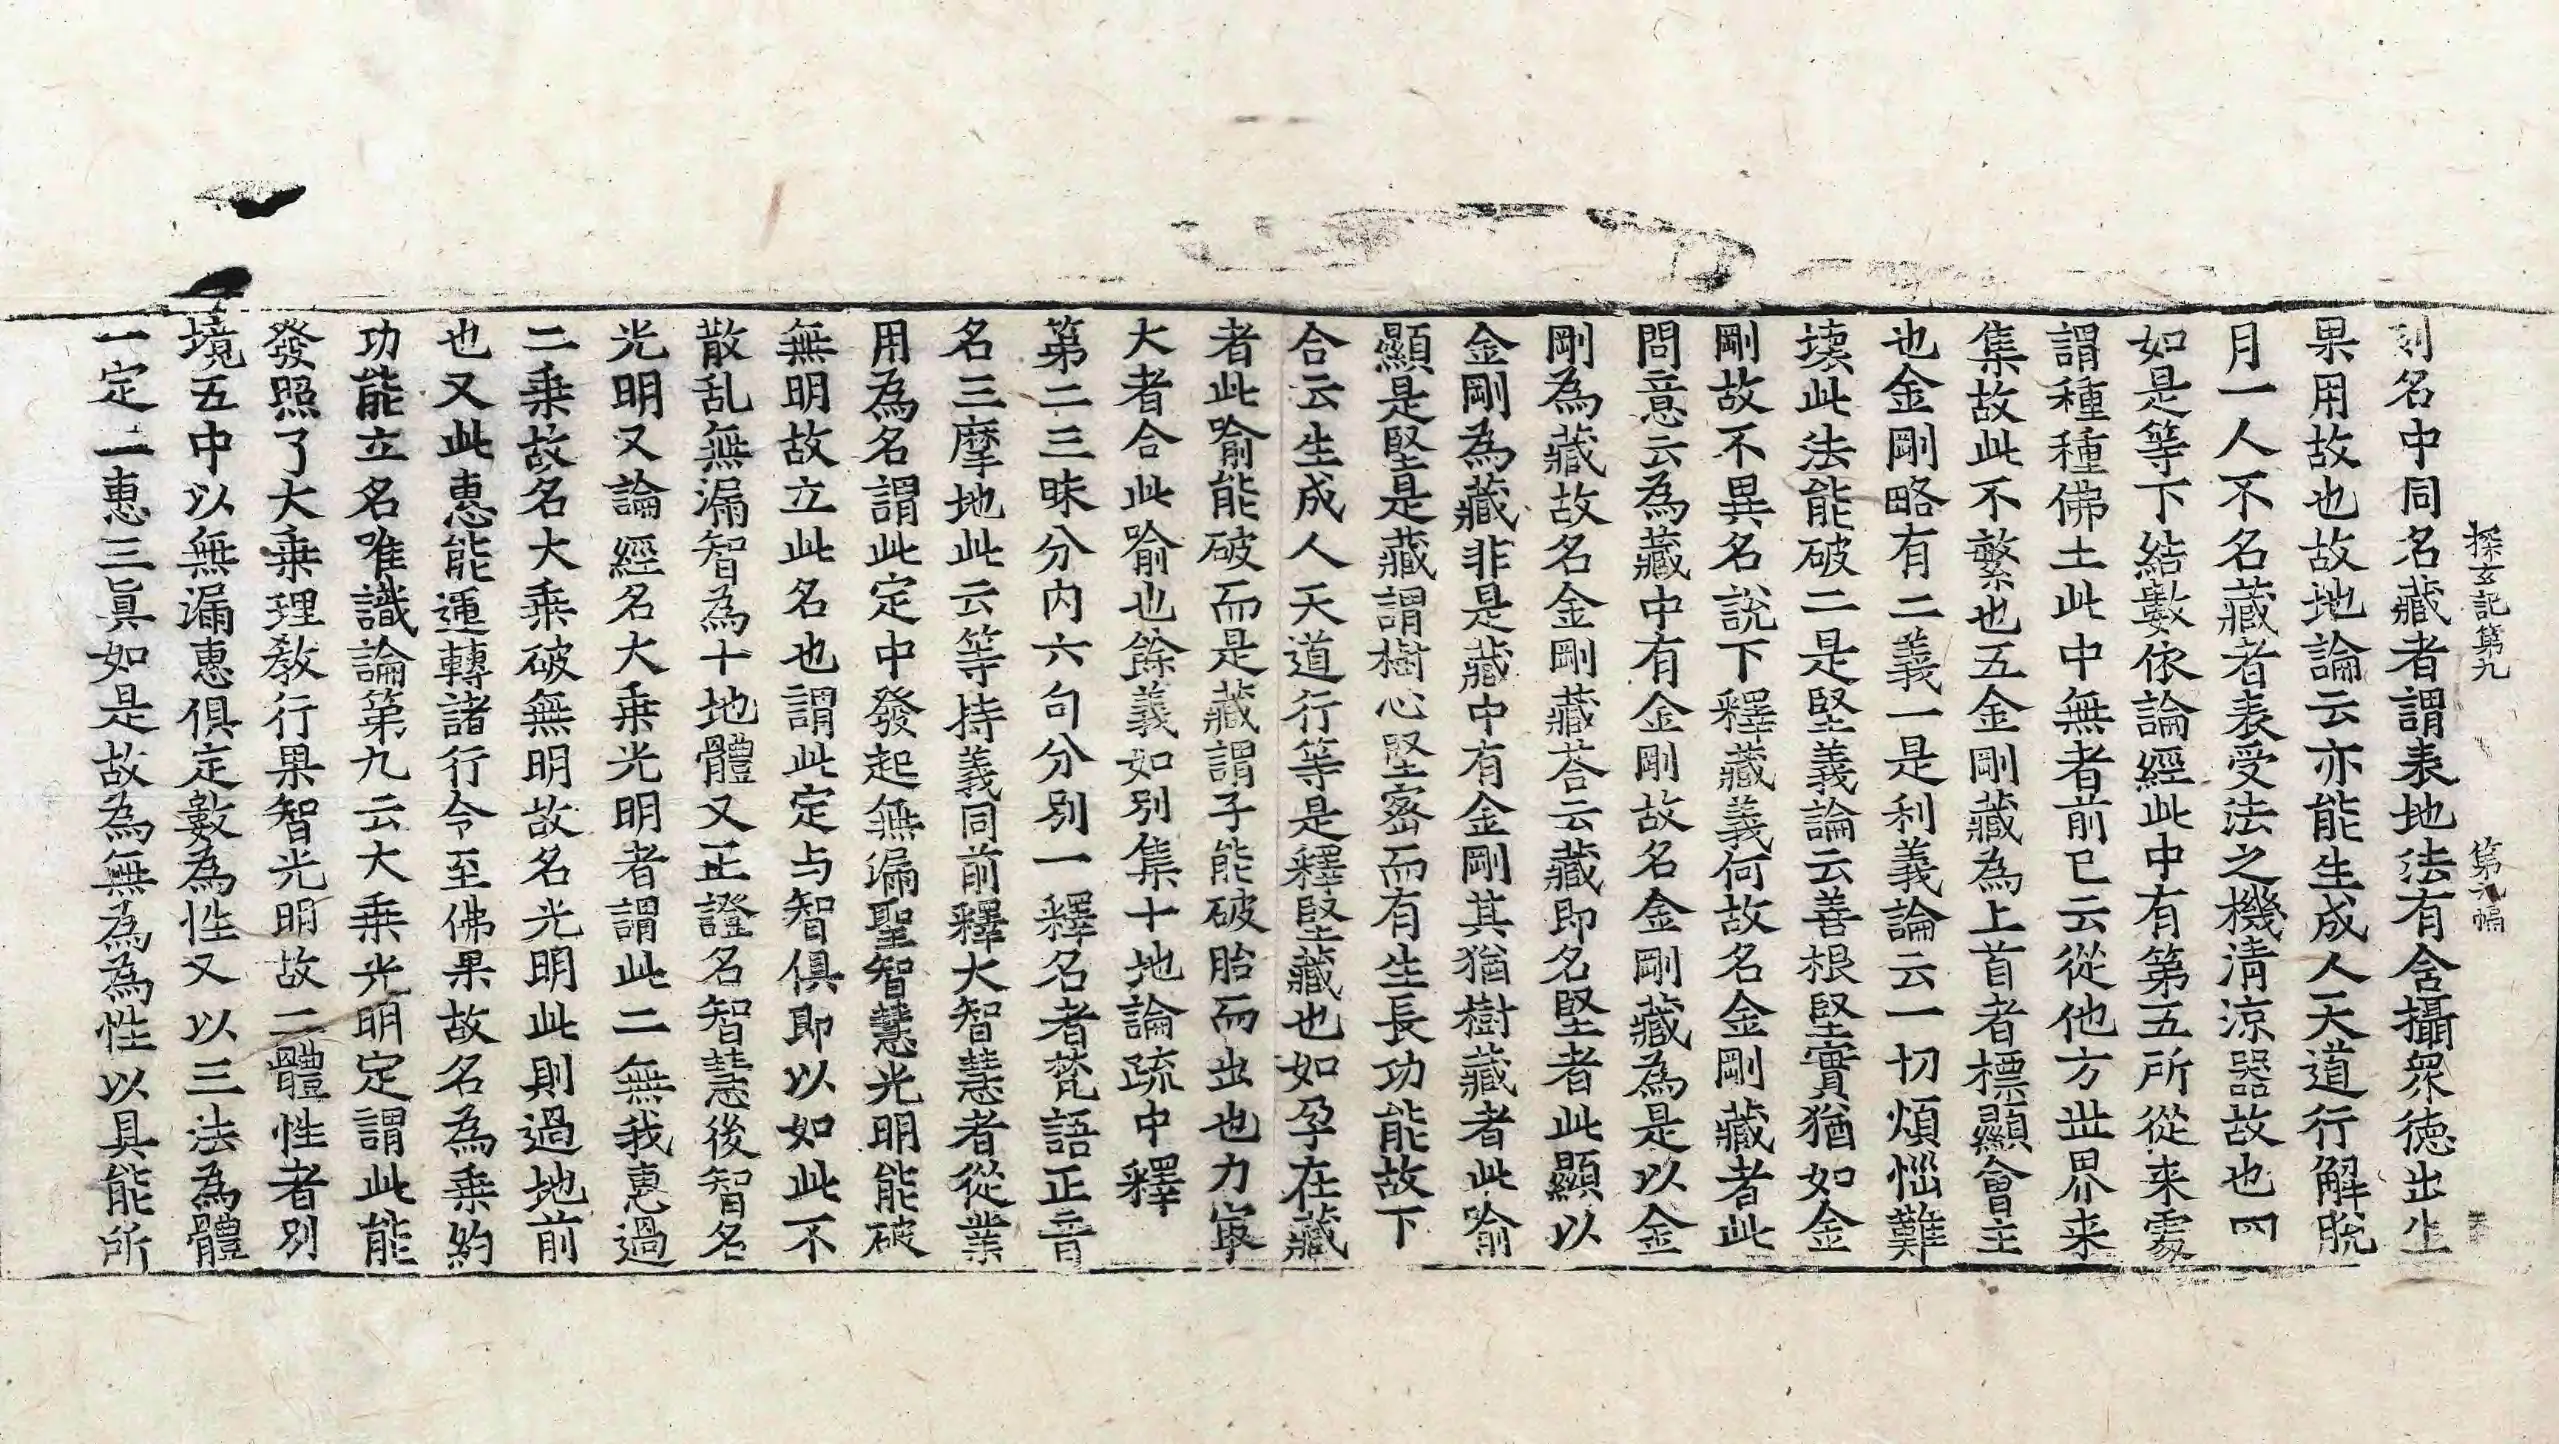 探玄記第九 第九幅
別名中同名藏者謂表地法有含攝衆徳出生
果用故也故地論云亦能生成人天道行解脫
月一人不名藏者表受法之機清涼器故也四
如是等下結數依論經此中有第五所從来處
謂種種佛土此中無者前已云從他方世界来
集故此不繁也五金剛藏為上首者標顯會主
也金剛略有二義一是利義論云一切煩惱難
壊此法能破二是堅義論云善根堅實猶如金
剛故不異名說下釋藏義何故名金剛藏者此
問意云為藏中有金剛故名金剛藏為是以金
剛為藏故名金剛藏荅云藏即名堅者此顯以
金剛為藏非是藏中有金剛其猶樹藏者此喻
顯是堅是藏謂樹心堅宻而有生長功能故下
合云生成人天道行等是釋堅藏也如孕在藏
者此喻能破而是藏謂子能破胎而出也力㝡
大者合此喻也餘義如別集十地論疏中釋
第二三昧分内六句分別一釋名者梵語正音
名三摩地此云等持義同前釋大智慧者從業
用為名謂此定中發起無漏聖智慧光明能破
無明故立此名也謂此定与智俱即以如此不
散乱無漏智為十地體又正證名智慧後智名
光明又論經名大乗光明者謂此二無我惠過
二乗故名大乗破無明故名光明此則過地前
也又此惠能運轉諸行令至佛果故名為乗約
功能立名唯識論第九云大乗光明定謂此能
發照了大乗理教行果智光明故二體性者別
境五中以無漏惠俱定數為性又以三法為體
一定二惠三眞如是故為無為為性以具能所